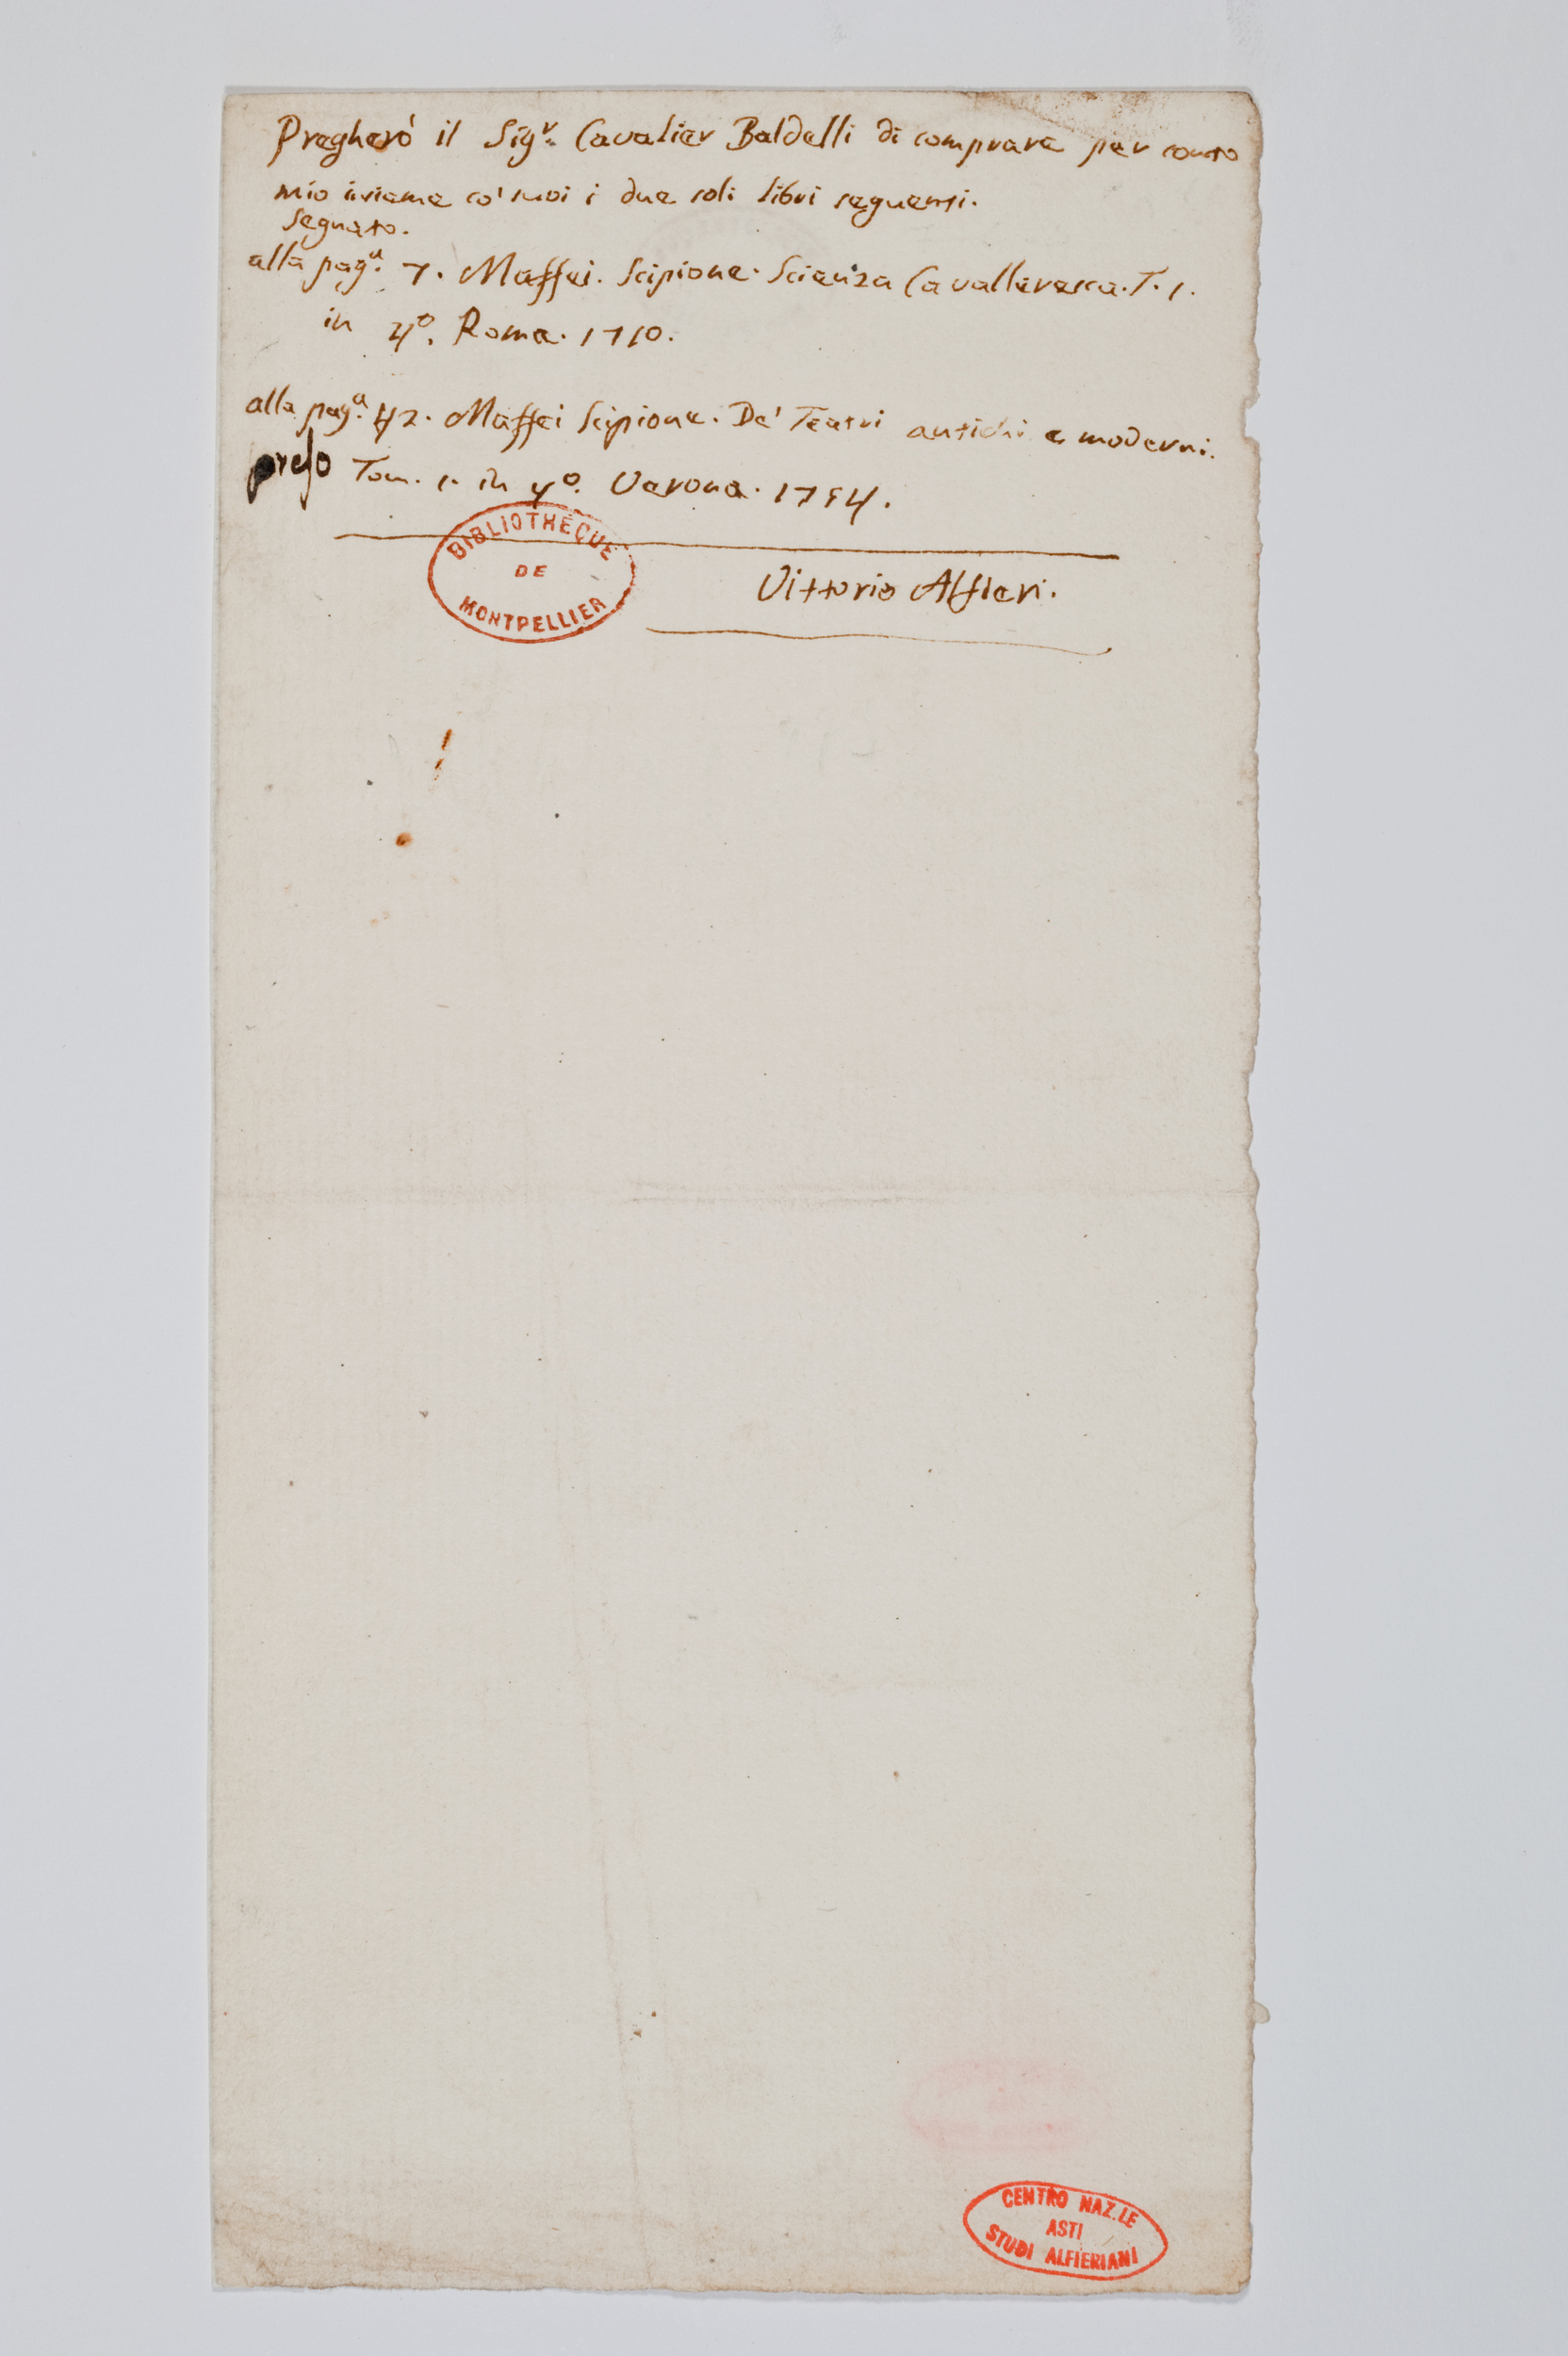 Pregherò il Sig.r Cavalier Baldelli di comprare per conto
mio insieme co' suoi i due soli libri seguenti.
Segnato.
alla pag.a 7. Maffei. Scipione. Scienza Cavalleresca. T. 1.
in 4.o Roma. 1710.
alla pag.a 42. Maffei Scipione. De' Teatri antichi e moderni.
preso Tom. 1. in 4.o Verona. 1754.
BIBLIOTHEQUE
DE
MONTPELLIER
Vittorio Alfieri.
CENTRO NAZ.LE
ASTI
STUDI ALFIERIANI